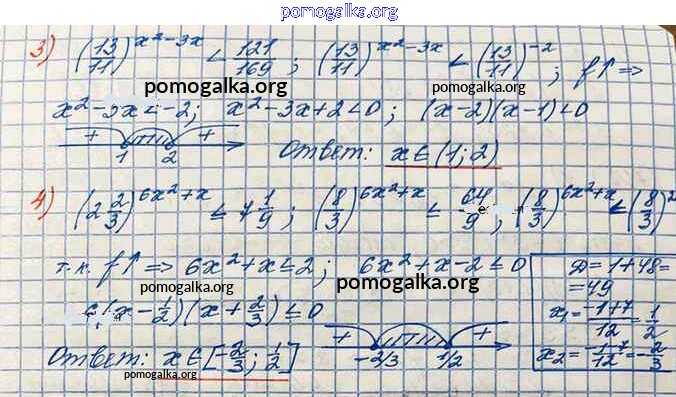 pomogalka.org
3) (13/11)^(x²-3x) < 121/169; (13/11)^(x²-3x) < (13/11)^(-2); f↑ =>
pomogalka.org
pomogalka.org
x²-3x<-2; x²-3x+2<0; (x-2)(x-1)<0
pomogalka.org
+ + 1 2 Ответ: x∈(1;2)
4) (2 2/3)^(6x²+x) ≤ 7 1/9; (8/3)^(6x²+x) ≤ 64/9; (8/3)^(6x²+x) ≤ (8/3)²
т.к. f↑ => 6x²+x≤2; 6x²+x-2≤0
Д=1+48=
=49
pomogalka.org
pomogalka.org
6(x-1/2)(x+2/3)≤0
x₁=(-1+7)/12=1/2
+ + -2/3 1/2
Ответ: x∈[-2/3; 1/2]
x₂=(-1-7)/12=-2/3
pomogalka.org